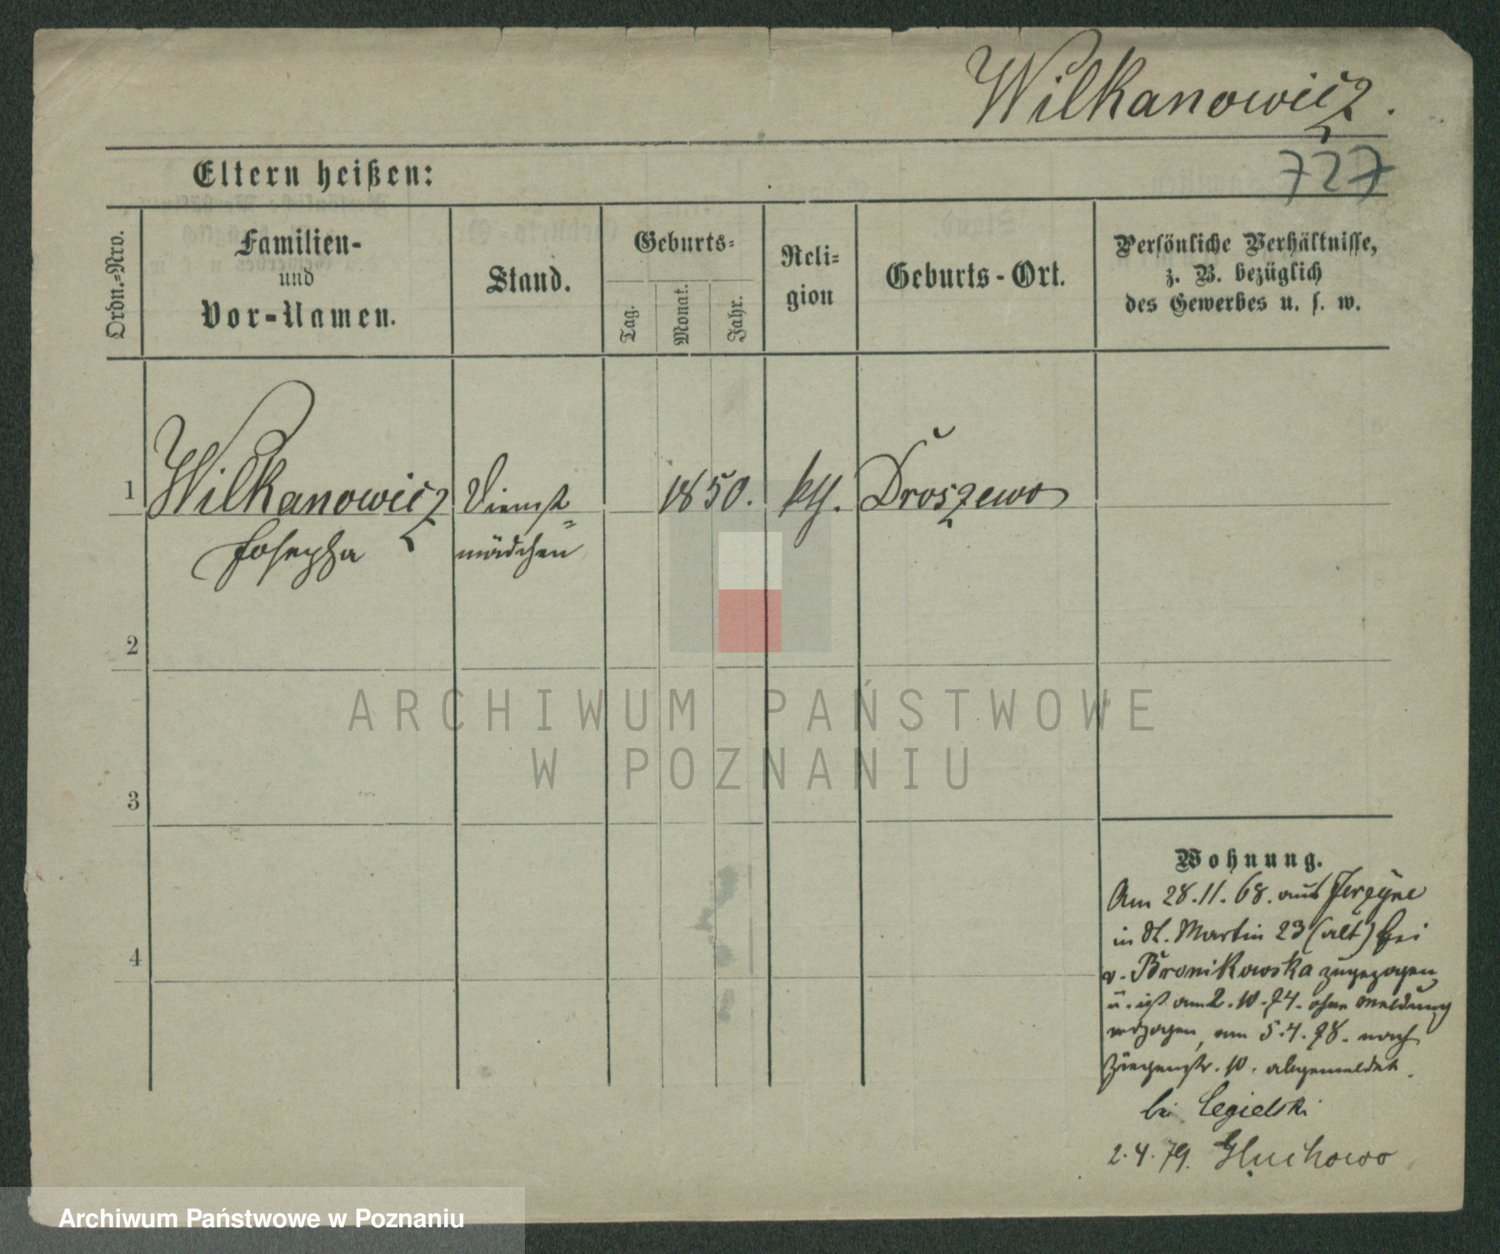 Wilkanowicz.
727
Eltern heißen:
Ordn.-Nro.
Familien-
und
Vor-Namen.
Stand.
Geburts-
Tag.
Monat.
Jahr.
Reli-
gion
Geburts-Ort.
Persönliche Verhältnisse,
z. B. bezüglich
des Gewerbes u. s. w.
1 Wilkanowicz Dienst= 1850. kth. Droszewo
Josepha mädchen
2
3
4
Wohnung.
Am 28.11.68. aus
in St. Martin 23 (alt) bei
v. Bronikowska zugezogen
u. ist am 2.10.74. ohne Meldung
verzogen, am 5.4.78. nach
Ziegenstr. 10. abgemeldet.
bei Cegielski
2.4.79. Gluchowo
ARCHIWUM PAŃSTWOWE
W POZNANIU
Archiwum Państwowe w Poznaniu